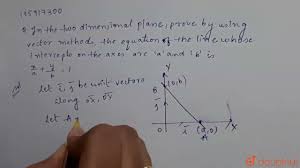 145917300
Q. In the two dimensional plane, prove by using
vector methods, the equation of the line whose
intercepts on the axes are 'a' and 'b' is
x/a + y/b = 1
Let i, j be unit vectors
along ox, oy
Let A =
Y
B (0,b)
j
O
i
(a,0)
A
X
doubtnut